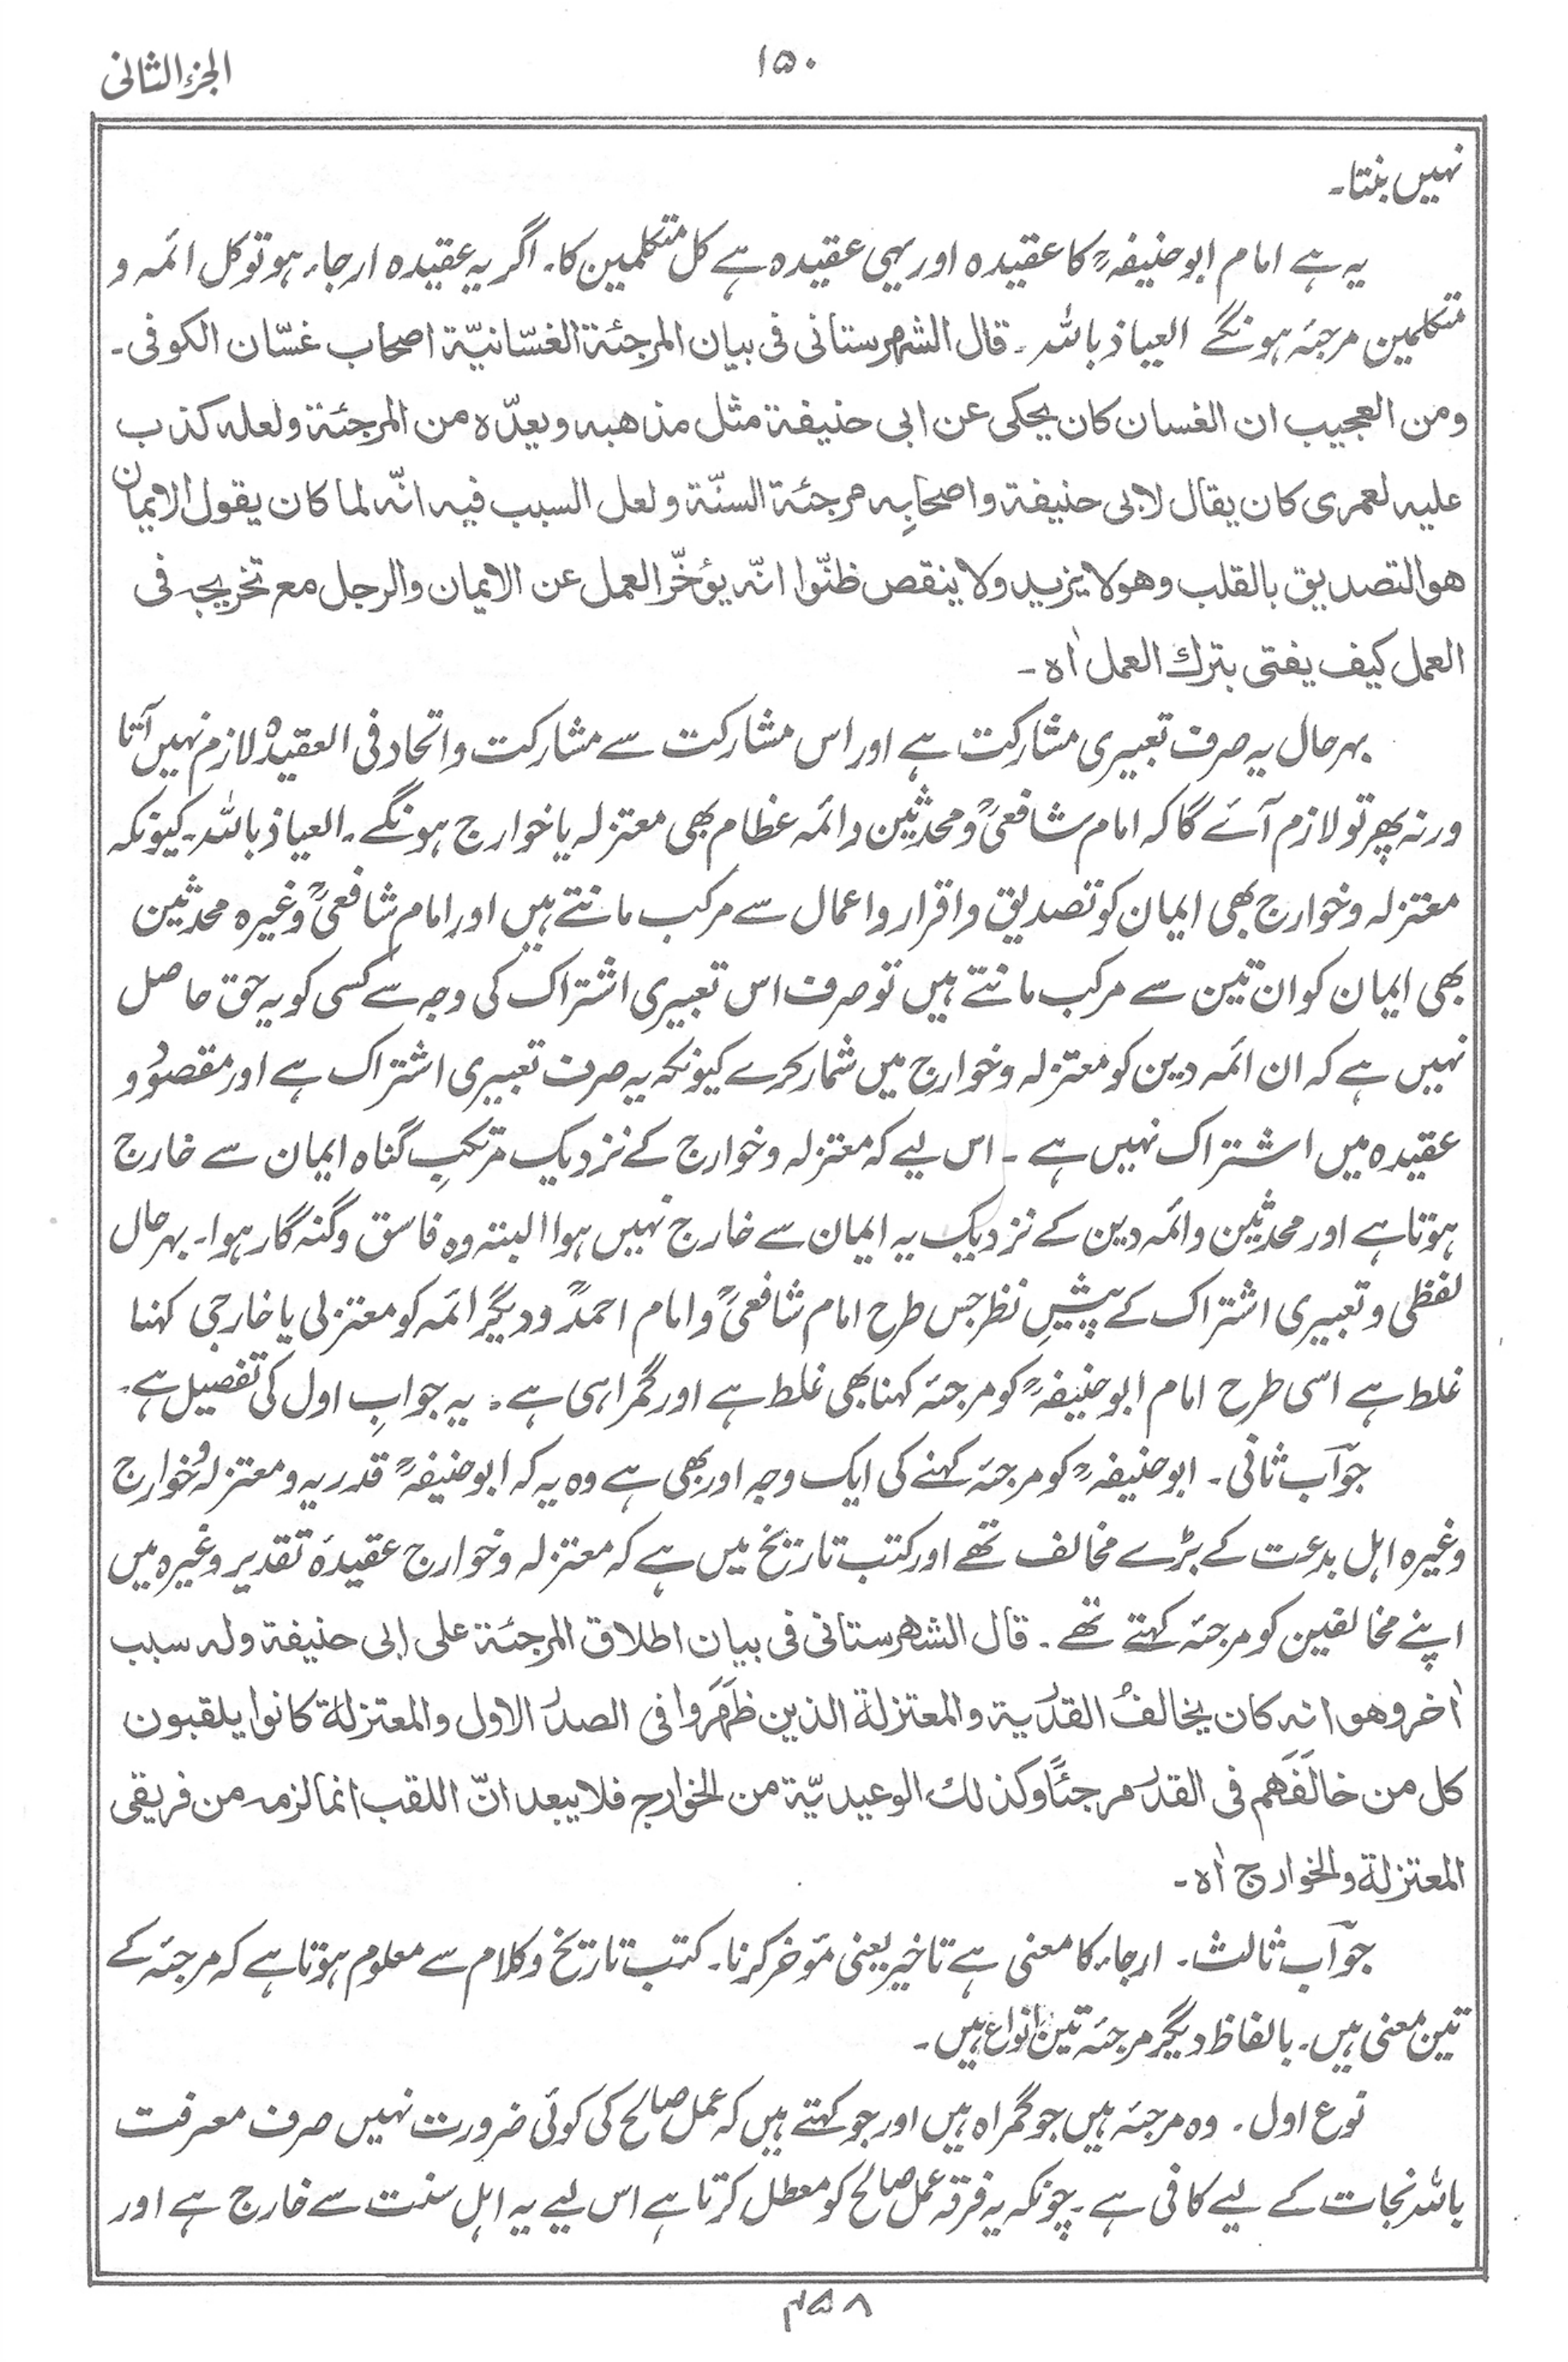 الجزء الثانی
۱۵۰
نہیں بنتا۔
یہ ہے امام ابوحنیفہؒ کا عقیدہ اور یہی عقیدہ ہے کل متکلمین کا۔ اگر یہ عقیدہ ارجاء ہو تو کل ائمہ و
متکلمین مرجئہ ہونگے العیاذ باللہ۔ قال الشہرستانی فی بیان المرجئة الغسّانیّة اصحاب غسّان الکوفی۔
ومن العجیب ان الغسان کان یحکی عن ابی حنیفة مثل مذهبه ویعدّه من المرجئة ولعله کذب
علیه لعمری کان یقال لابی حنیفة واصحابِه مرجئة السنّة ولعل السبب فیه انّه لما کان یقول الایمان
هو التصدیق بالقلب وهو لا یزید ولا ینقص ظنّوا انّه یؤخّر العمل عن الایمان والرجل مع تخریجه فی
العمل کیف یفتی بترك العمل اٰه۔
بہرحال یہ صرف تعبیری مشارکت ہے اور اس مشارکت سے مشارکت و اتحاد فی العقیدہ لازم نہیں آتا
ورنہ پھر تو لازم آئے گا کہ امام شافعیؒ و محدثین و ائمہ عظام بھی معتزلہ یا خوارج ہونگے۔ العیاذ باللہ۔ کیونکہ
معتزلہ و خوارج بھی ایمان کو تصدیق و اقرار و اعمال سے مرکب مانتے ہیں اور امام شافعیؒ وغیرہ محدثین
بھی ایمان کو ان تین سے مرکب مانتے ہیں تو صرف اس تعبیری اشتراک کی وجہ سے کسی کو یہ حق حاصل
نہیں ہے کہ ان ائمہ دین کو معتزلہ و خوارج میں شمار کرے کیونکہ یہ صرف تعبیری اشتراک ہے اور مقصود و
عقیدہ میں اشتراک نہیں ہے۔ اس لیے کہ معتزلہ و خوارج کے نزدیک مرتکبِ گناہ ایمان سے خارج
ہوتا ہے اور محدثین و ائمہ دین کے نزدیک یہ ایمان سے خارج نہیں ہوا البتہ وہ فاسق و گنہ گار ہوا۔ بہرحال
لفظی و تعبیری اشتراک کے پیشِ نظر جس طرح امام شافعیؒ و امام احمدؒ و دیگر ائمہ کو معتزلی یا خارجی کہنا
غلط ہے اسی طرح امام ابوحنیفہؒ کو مرجئہ کہنا بھی غلط ہے اور گمراہی ہے۔ یہ جوابِ اول کی تفصیل ہے۔
جوآب ثانی۔ ابوحنیفہؒ کو مرجئہ کہنے کی ایک وجہ اور بھی ہے وہ یہ کہ ابوحنیفہؒ قدریہ و معتزلہ و خوارج
وغیرہ اہل بدعت کے بڑے مخالف تھے اور کتب تاریخ میں ہے کہ معتزلہ و خوارج عقیدۂ تقدیر وغیرہ میں
اپنے مخالفین کو مرجئہ کہتے تھے۔ قال الشهرستانی فی بیان اطلاق المرجئة علی ابی حنیفة وله سبب
اٰخر وهو انه کان یخالفُ القدریة والمعتزلة الذین ظَهَروا فی الصدر الاول والمعتزلة کانوا یلقبون
کل من خالَفَهم فی القدر مرجئًا وکذلك الوعیدیّة من الخوارج فلا یبعد انّ اللقب انما لزمه من فریقی
المعتزلة والخوارج اٰه۔
جوآب ثالث۔ ارجاء کا معنی ہے تاخیر یعنی مؤخر کرنا۔ کتب تاریخ و کلام سے معلوم ہوتا ہے کہ مرجئہ کے
تین معنی ہیں۔ بالفاظ دیگر مرجئہ تین انواع ہیں۔
نوع اول۔ وہ مرجئہ ہیں جو گمراہ ہیں اور جو کہتے ہیں کہ عمل صالح کی کوئی ضرورت نہیں صرف معرفت
باللہ نجات کے لیے کافی ہے۔ چونکہ یہ فرقہ عمل صالح کو معطل کرتا ہے اس لیے یہ اہل سنت سے خارج ہے اور
۴۵۸